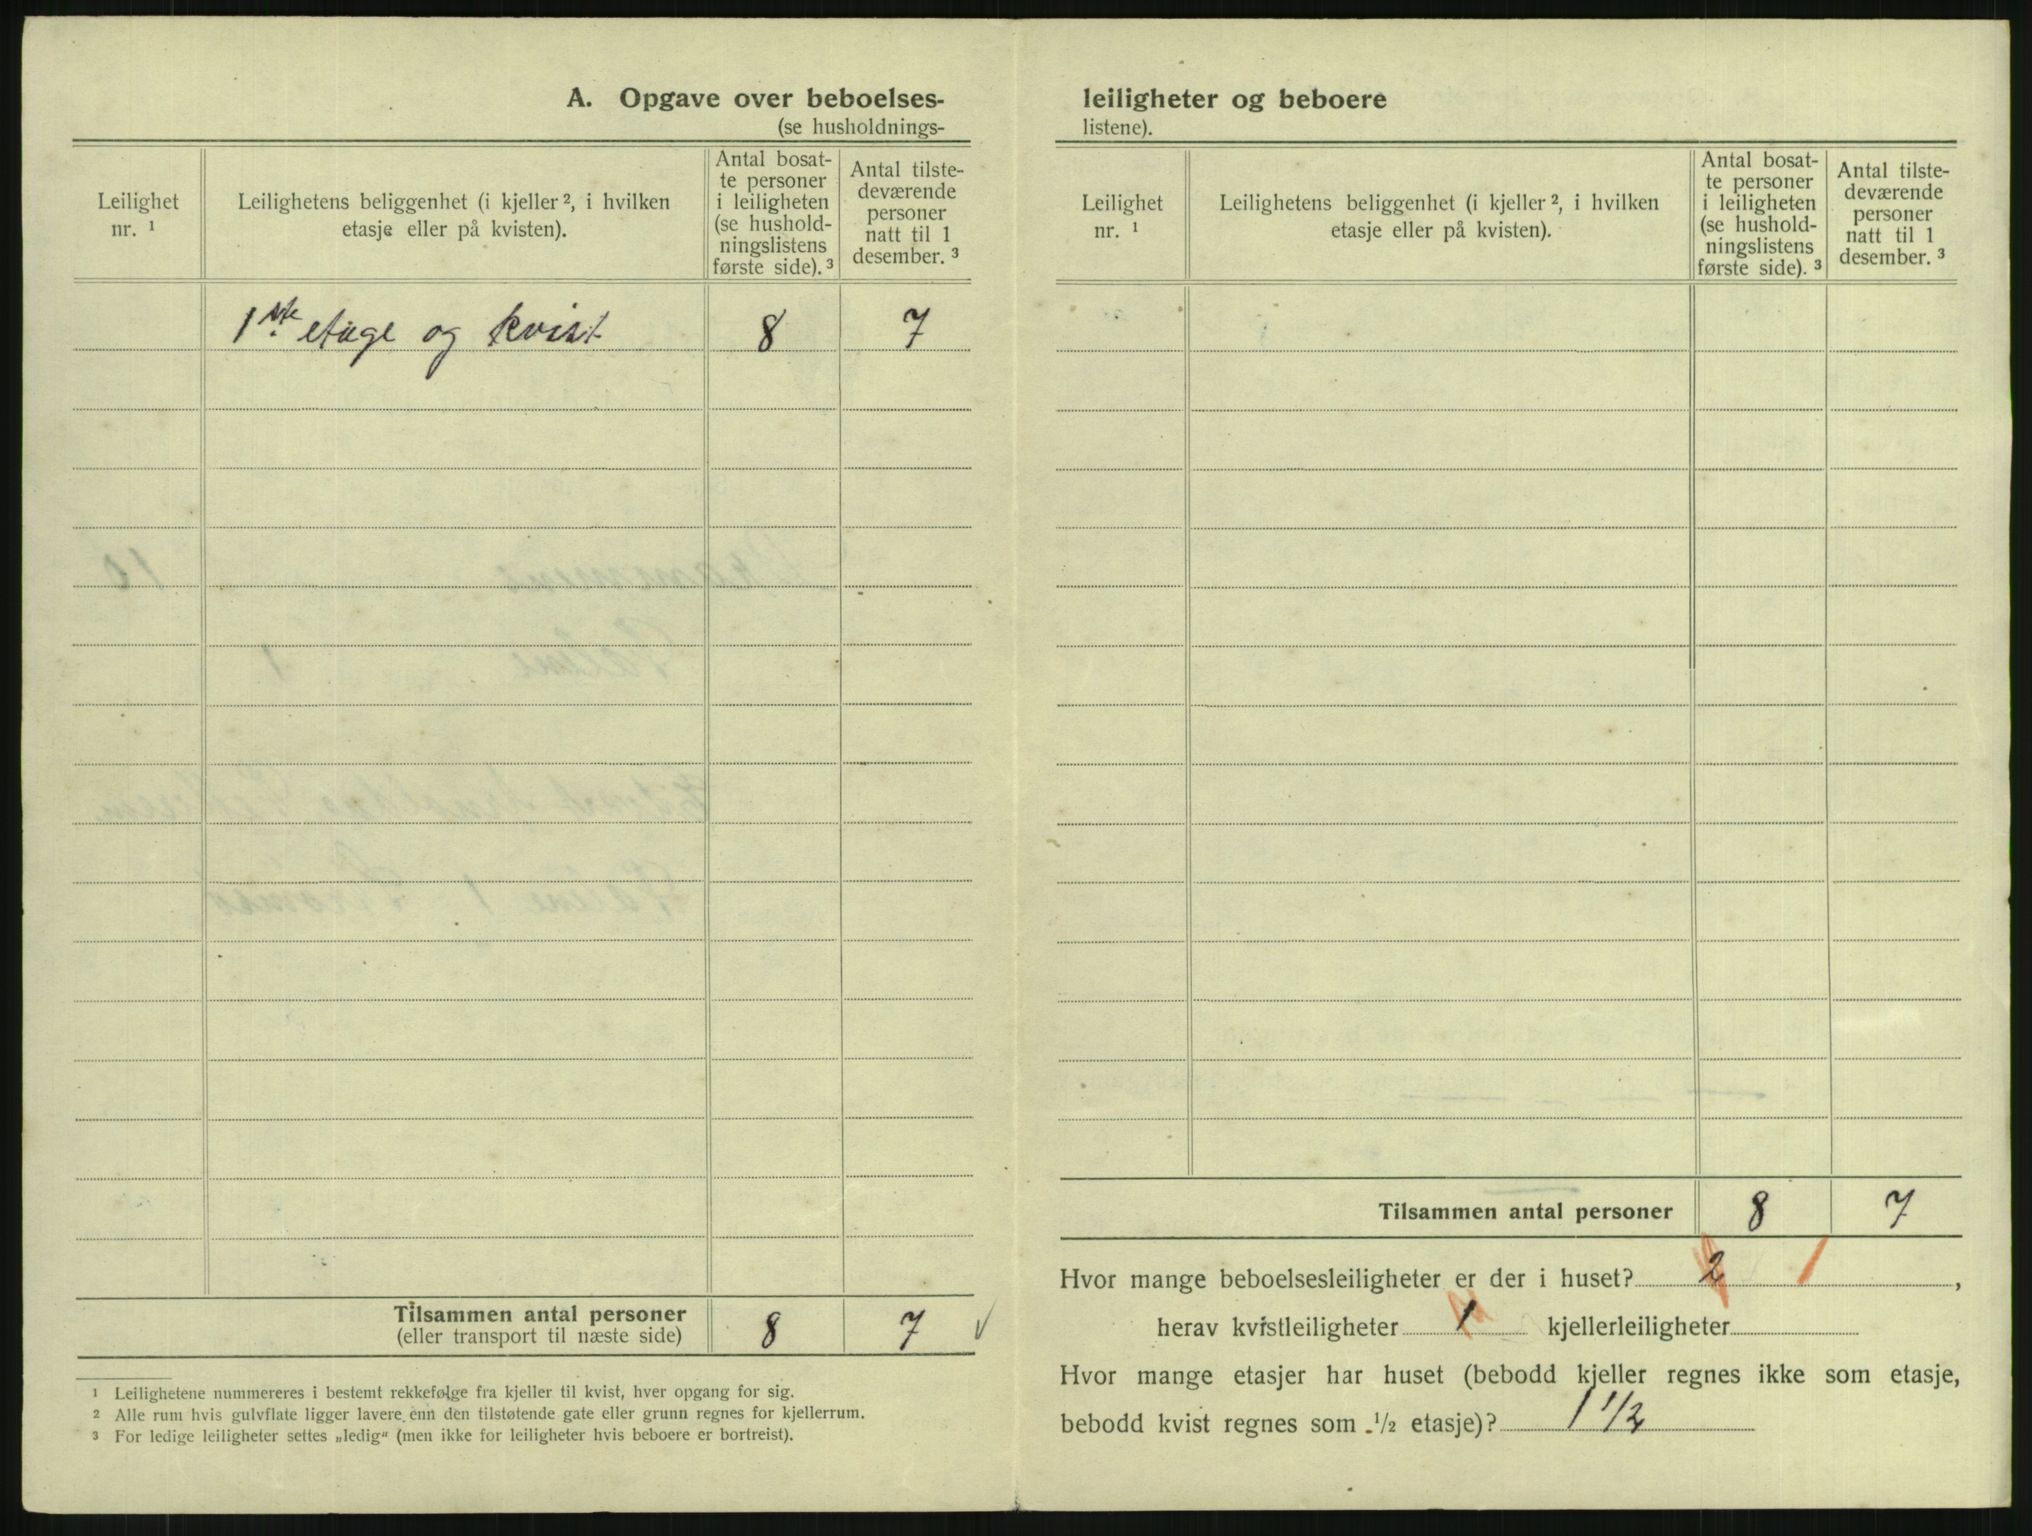 A. Opgave over beboelses-
(se husholdnings-
Leilighet
nr. ¹
Leilighetens beliggenhet (i kjeller ², i hvilken
etasje eller på kvisten).
Antal bosat-
te personer
i leiligheten
(se hushold-
ningslistens
første side). ³
Antal tilste-
deværende
personer
natt til 1
desember. ³
1ste etage og kvist 8 7
Tilsammen antal personer
(eller transport til næste side) 8 7 ✓
¹ Leilighetene nummereres i bestemt rekkefølge fra kjeller til kvist, hver opgang for sig.
² Alle rum hvis gulvflate ligger lavere enn den tilstøtende gate eller grunn regnes for kjellerrum.
³ For ledige leiligheter settes „ledig“ (men ikke for leiligheter hvis beboere er bortreist).
leiligheter og beboere
listene).
Leilighet
nr. ¹
Leilighetens beliggenhet (i kjeller ², i hvilken
etasje eller på kvisten).
Antal bosat-
te personer
i leiligheten
(se hushold-
ningslistens
første side). ³
Antal tilste-
deværende
personer
natt til 1
desember. ³
Tilsammen antal personer 8 7
Hvor mange beboelsesleiligheter er der i huset? 2 1,
herav kvistleiligheter 1 kjellerleiligheter
Hvor mange etasjer har huset (bebodd kjeller regnes ikke som etasje,
bebodd kvist regnes som ½ etasje)? 1 1/2